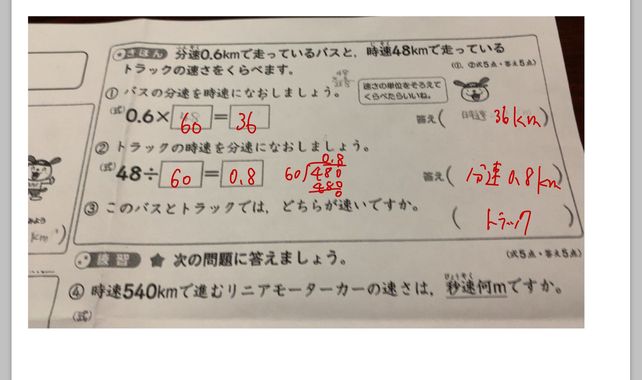 きほん 分速0.6kmで走っているバスと，時速48kmで走っている
トラックの速さをくらべます。
(①，②式5点・答え5点)
速さの単位をそろえて
くらべたらいいね。
① バスの分速を時速になおしましょう。
(式) 0.6×60=36
答え( 時速 36km)
② トラックの時速を分速になおしましょう。
(式) 48÷60=0.8
0.8
60)480
480
0
答え( 分速0.8km)
③ このバスとトラックでは，どちらが速いですか。
( トラック )
練習 ★ 次の問題に答えましょう。
(式5点・答え5点)
④ 時速540kmで進むリニアモーターカーの速さは，秒速何mですか。
(式)
km )